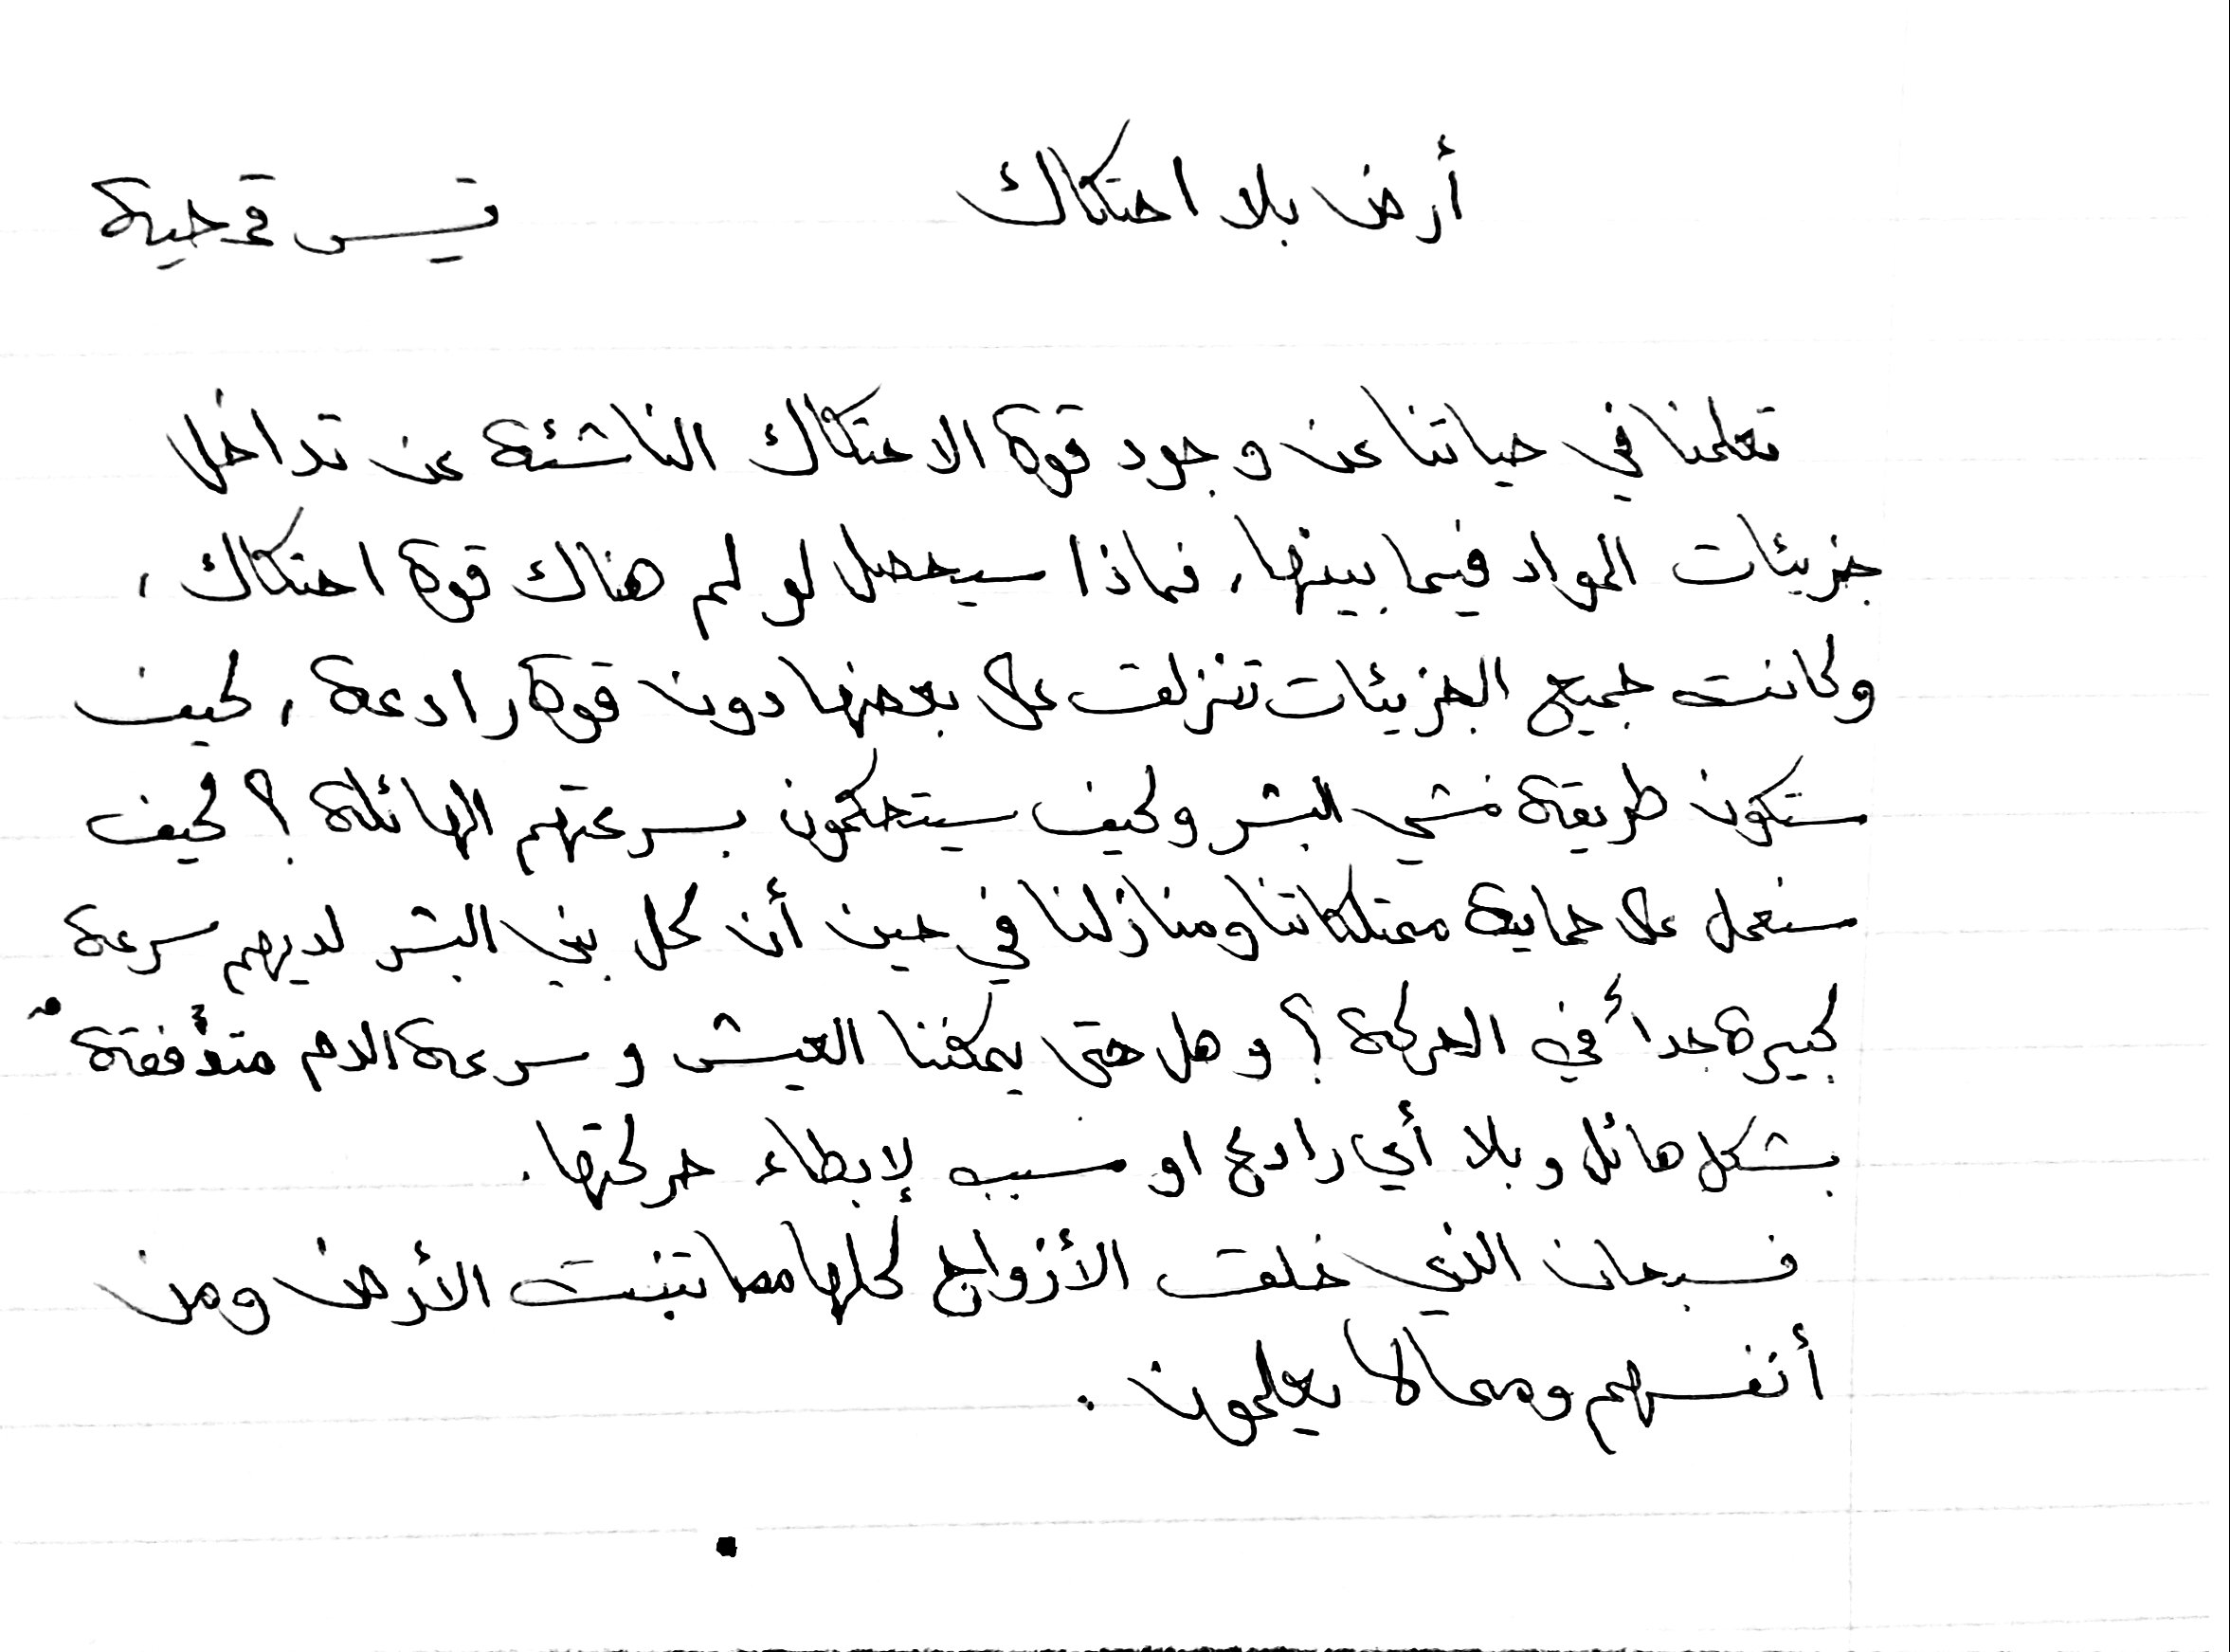 أرض بلا احتكاك
تعلمنا في حياتنا عن وجود قوة الاحتكاك الناشئة عن تداخل
جزيئات المواد فيما بينها، فماذا سيحصل لو لم هناك قوة احتكاك،
وكانت جميع الجزيئات تنزلق على بعضها دون قوة رادعة، كيف
ستكون طريقة مشي البشر وكيف سيتحكمون بسرعتهم الهائلة؟ كيف
سنعمل على حماية ممتلكاتنا ومنازلنا في حين أن كل بني البشر لديهم سرعة
كبيرة جداً في الحركة؟ وهل حتى يمكننا العيش وسرعة الدم متدفقة
بشكل هائل وبلا أي رادع او مسبب لإبطاء حركتها.
فسبحان الذي خلق الأزواج كلها مما تنبت الأرض ومن
أنفسهم ومما لا يعلمون.